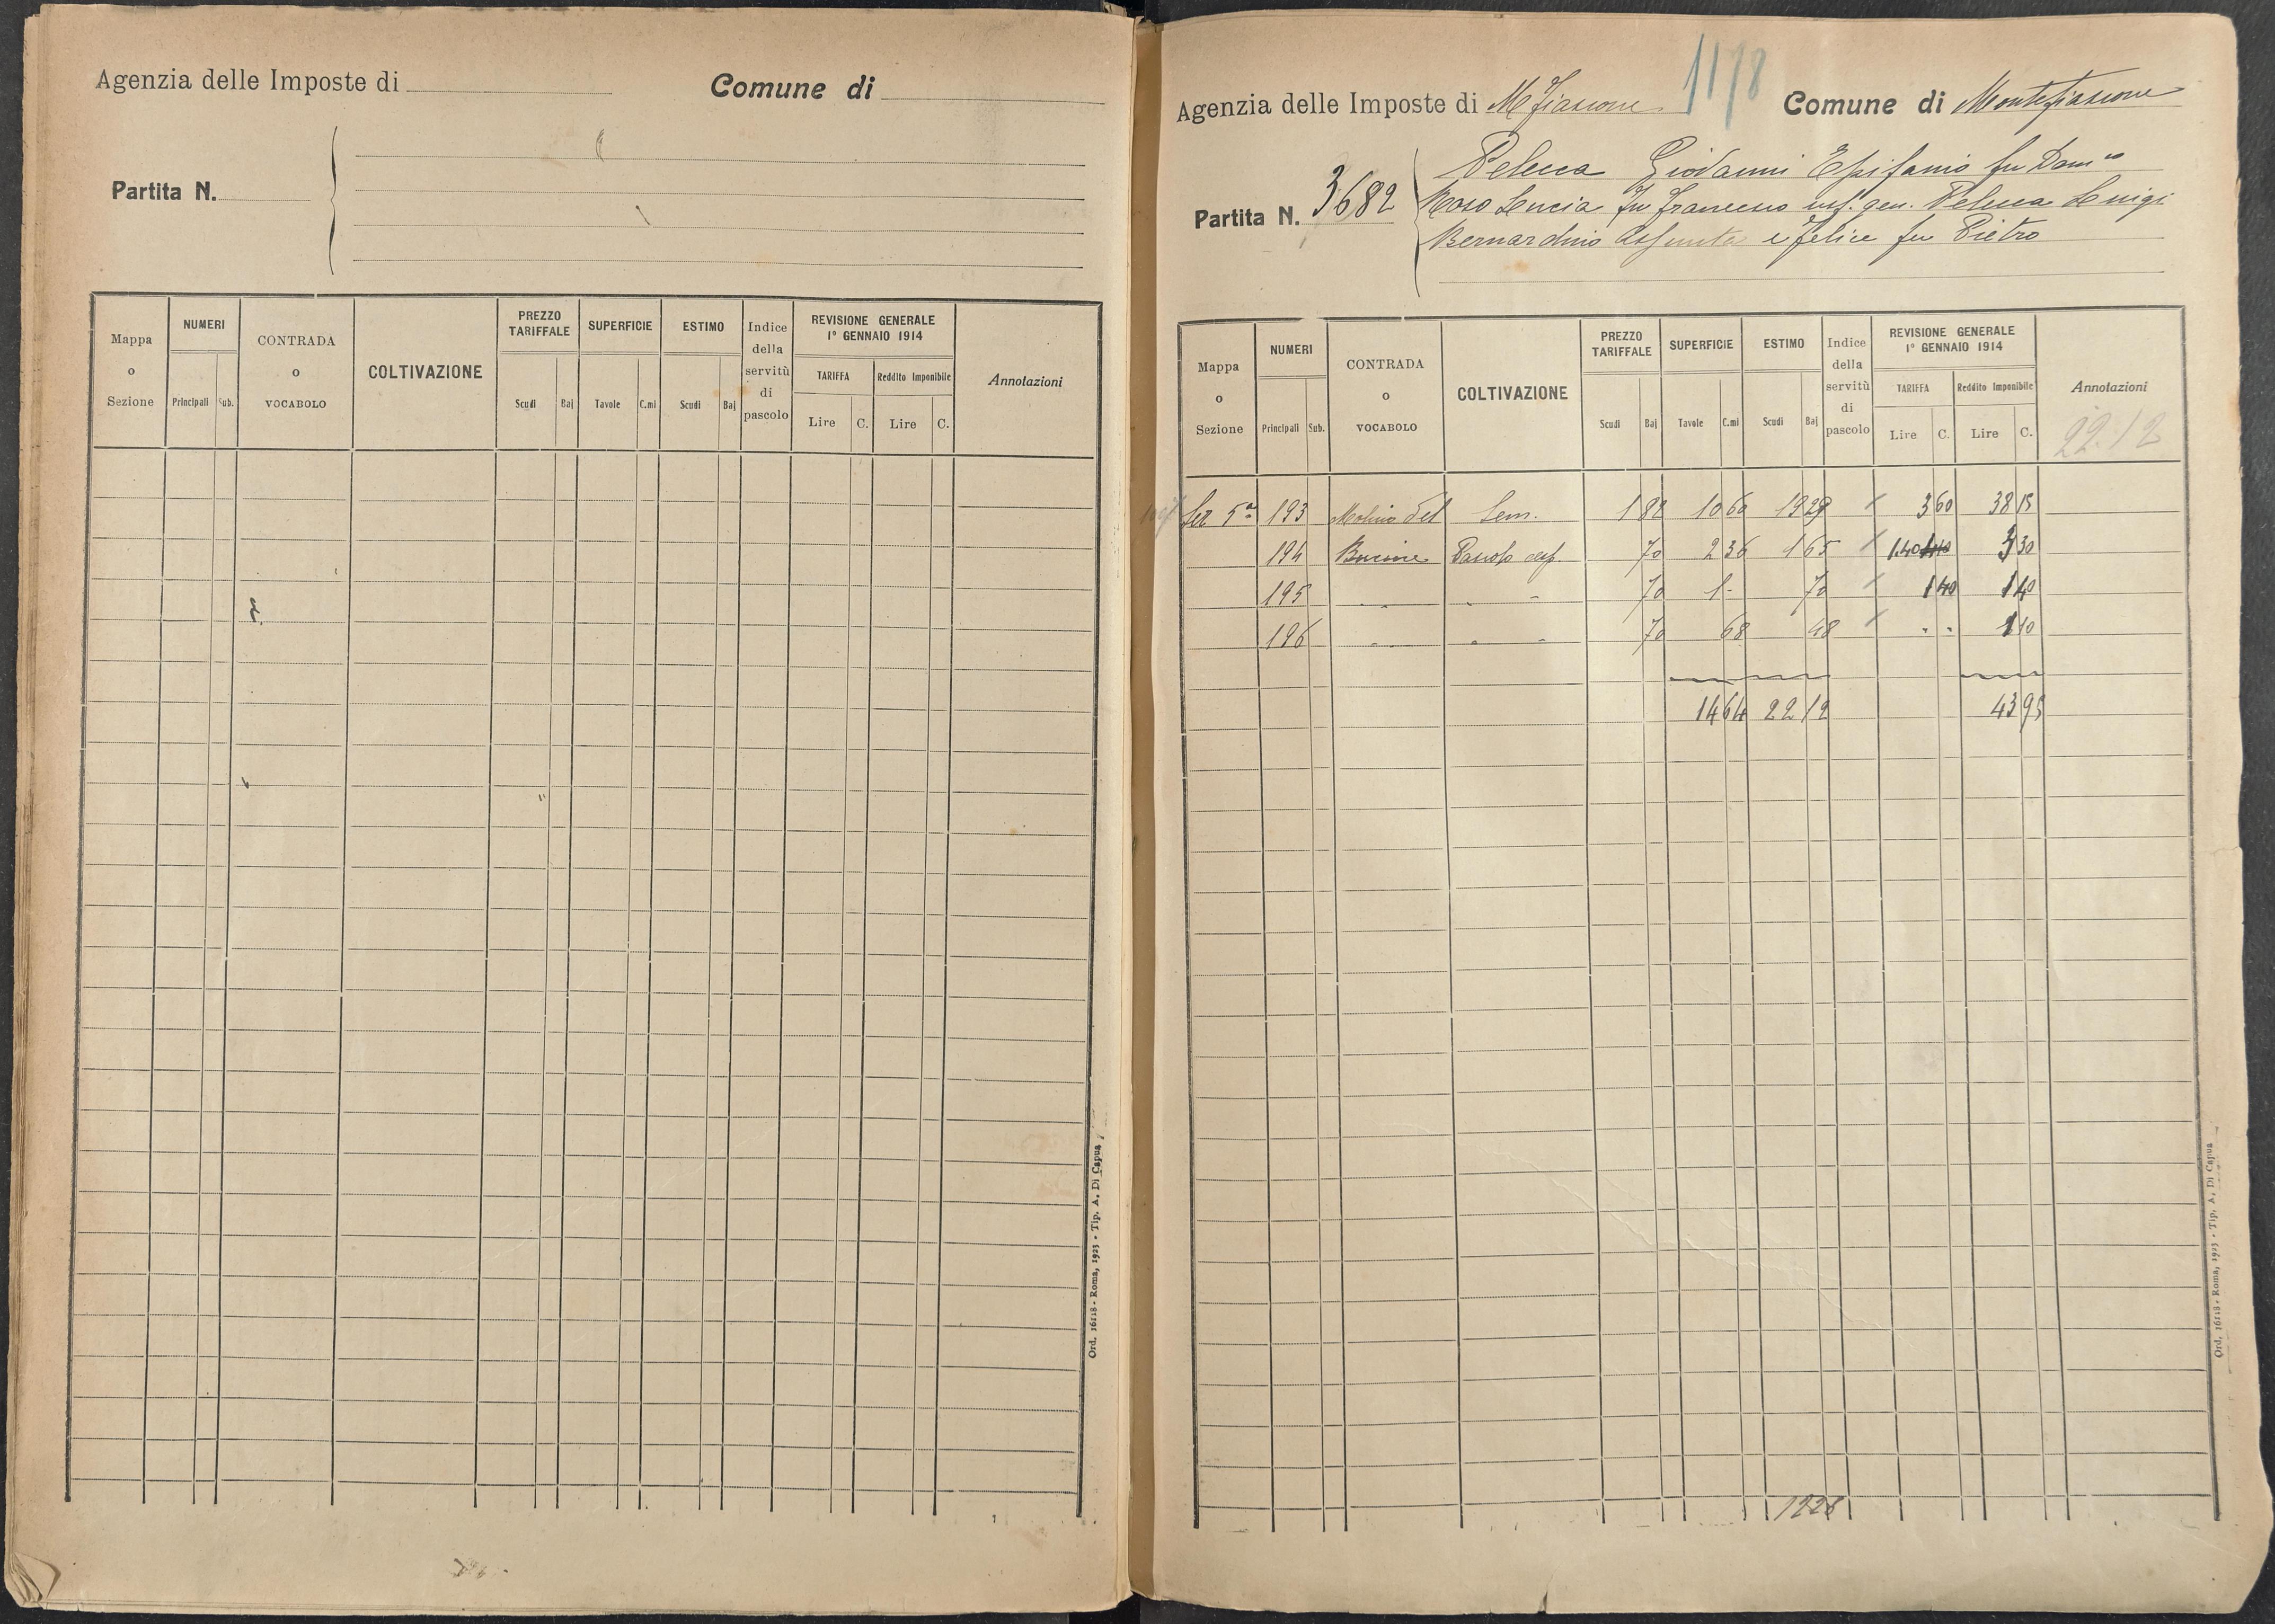 Agenzia delle Imposte di
Comune di
Partita N.
Mappa o Sezione
NUMERI
Principali
Sub.
CONTRADA o VOCABOLO
COLTIVAZIONE
PREZZO TARIFFALE
Scudi
Baj
SUPERFICIE
Tavole
C.mi
ESTIMO
Scudi
Baj
Indice della servitù di pascolo
REVISIONE GENERALE
1° GENNAIO 1914
TARIFFA
Reddito Imponibile
Lire
C.
Lire
C.
Annotazioni
Ord. 16118 - Roma, 1923 - Tip. A. Di Capua
1178
Agenzia delle Imposte di Mfiascone
Comune di Montefiascone
Partita N. 3682
Pelecca Giovanni Epifanio fu Dom co
Lucia fu Francesco usf. gen. Pelecca Luigi
Bernardino Assunta e Felice fu Pietro
Mappa o Sezione
NUMERI
Principali
Sub.
CONTRADA o VOCABOLO
COLTIVAZIONE
PREZZO TARIFFALE
Scudi
Baj
SUPERFICIE
Tavole
C.mi
ESTIMO
Scudi
Baj
Indice della servitù di pascolo
REVISIONE GENERALE
1° GENNAIO 1914
TARIFFA
Reddito Imponibile
Lire
C.
Lire
C.
Annotazioni
22.12
Sez 5a 193 Molino del Sem. 1 82 10 60 19 29 3 60 38 15
194 Bucine Pascolo 70 2 36 1 65 1.40 3 30
195 " " " 70 1 - 70 1 40 1 40
196 " " " 70 68 48 " " 1 10
14 64 22 12 43 95
1226
Ord. 16118 - Roma, 1923 - Tip. A. Di Capua